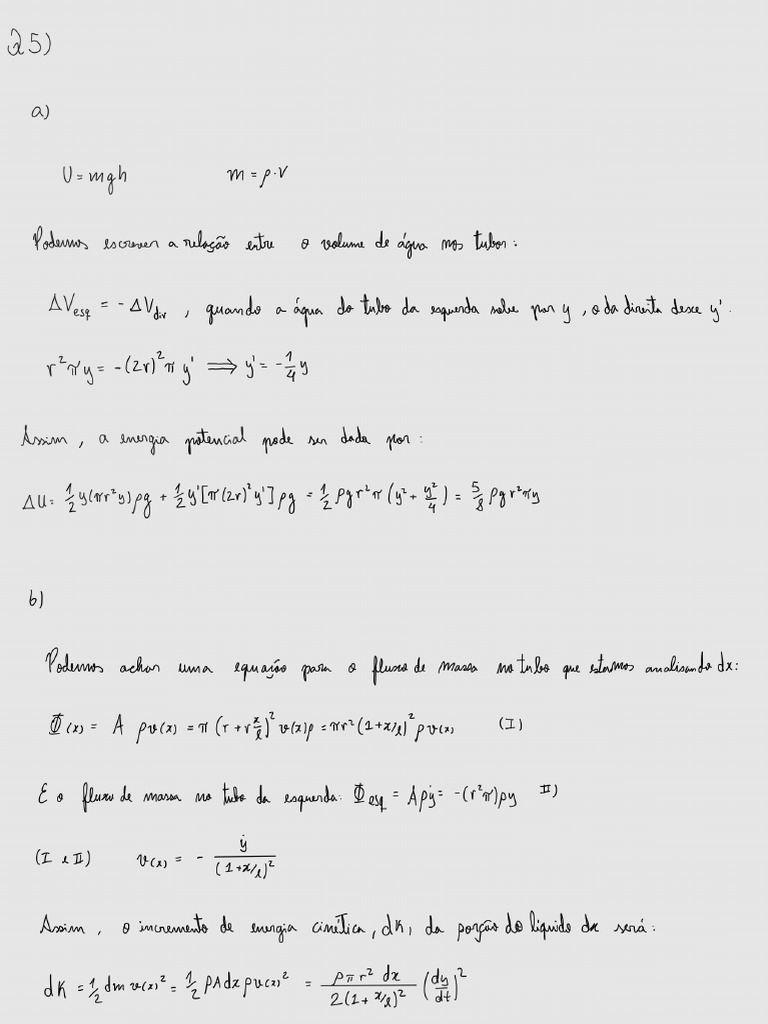 25)
a)
U = mgh m = ρ·V
Podemos escrever a relação entre o volume de água nos tubos:
ΔV_esq = -ΔV_dir , quando a água do tubo da esquerda sobe por y, o da direita desce y'.
r²πy = -(2r)²π y' ⟹ y' = -1/4 y
Assim, a energia potencial pode ser dada por:
ΔU = 1/2 y(πr²y)ρg + 1/2 y'[π(2r)²y']ρg = 1/2 ρgr²π(y² + y²/4) = 5/8 ρgr²πy
b)
Podemos achar uma equação para o fluxo de massa no tubo que estamos analisando dx:
Φ(x) = A ρv(x) = π(r + r x/l)² v(x)ρ = πr²(1+x/l)² ρv(x) (I)
E o fluxo de massa no tubo da esquerda: Φ_esq = Aρẏ = -(r²π)ρy II)
(I e II) v(x) = - ẏ/(1+x/l)²
Assim, o incremento de energia cinética, dK, da porção do líquido dx será:
dK = 1/2 dm v(x)² = 1/2 ρA dx ρv(x)² = ρπr² dx/2(1+x/l)² (dy/dt)²